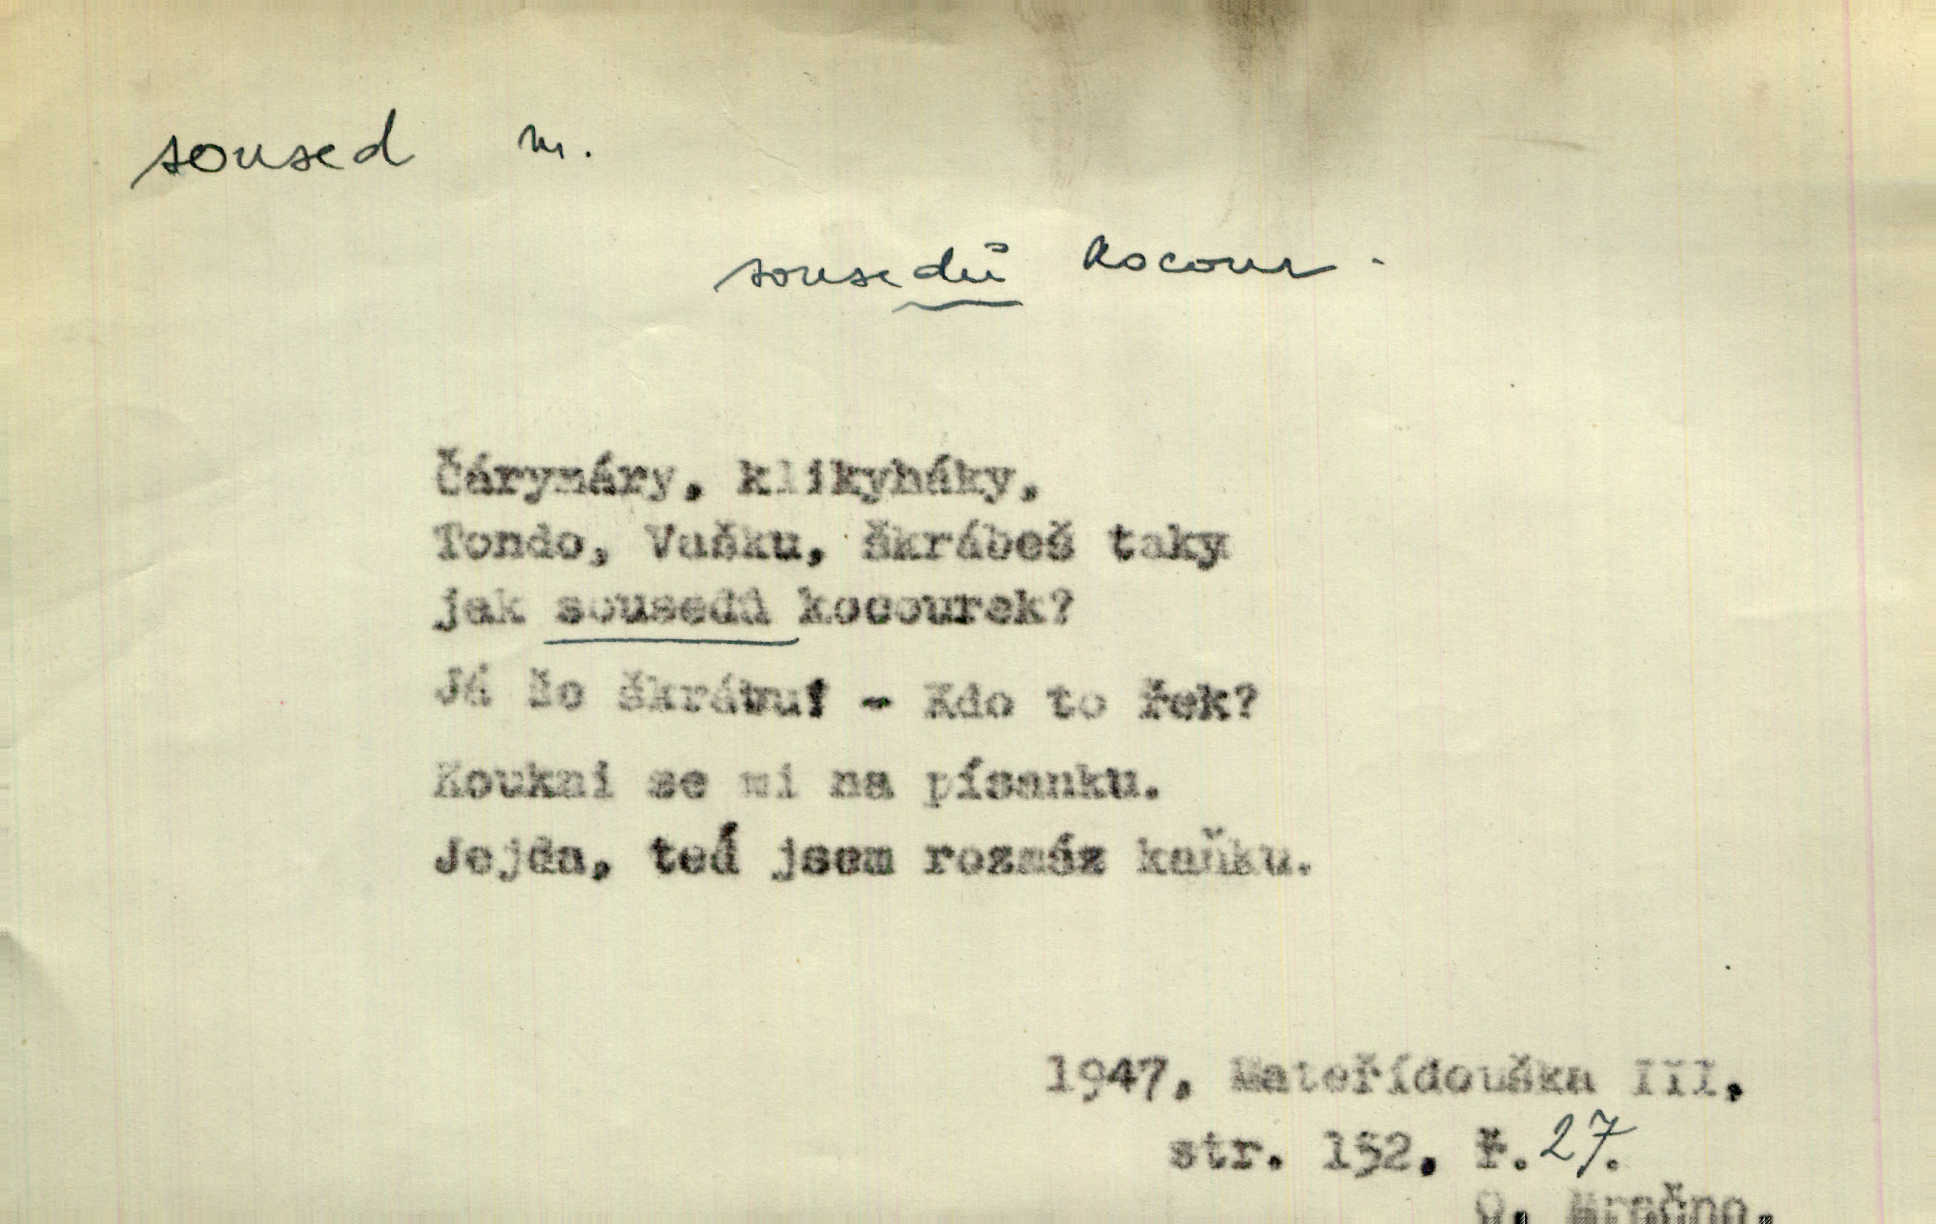 soused m.
sousedů kocour.
Čárymáry, klikyháky,
Tondo, Vašku, škrábeš taky
jak sousedů kocourek?
Já že škrábu? - Kdo to řek?
Koukni se mi na písanku.
Jejda, teď jsem rozmáz kaňku.
1947, Mateřídouška III,
str. 152, ř. 27.